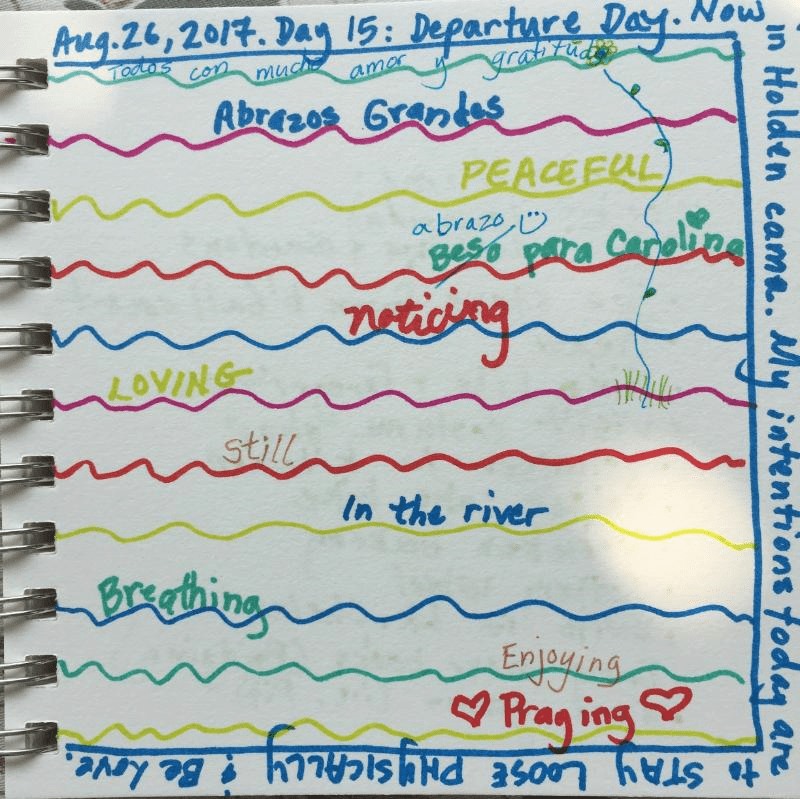 Aug. 26, 2017. Day 15: Departure Day. Now
in Holden cama. My intentions today are
to STAY LOOSE PHYSICALLY & Be Love.
Todos con mucho amor y gratitud
Abrazos Grandes
PEACEFUL
abrazo
Beso para Carolina
noticing
LOVING
still
In the river
Breathing
Enjoying
Praying